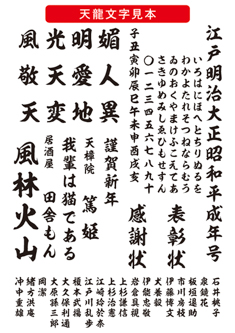 天龍文字見本
江戸明治大正昭和平成年号
いろはにほへとちりぬるを
わかよたれそつねならむう
ゐのおくやまけふこえてあ
さきゆめみしゑひもせすん
〇一二三四五六七八九十
子丑寅卯辰巳午未申酉戌亥
媚人異
明愛地
光天変
風敬天
表彰状
感謝状
謹賀新年
天樟院 篤姫
我輩は猫である
居酒屋 田舎もん
風林火山
石井桃子
泉鏡花
板垣退助
市川房枝
伊藤博文
犬養毅
伊能忠敬
岩倉具視
上杉謙信
上杉治憲
江崎玲於奈
江戸川乱歩
榎本武揚
大久保利通
大原孫三郎
岡潔
緒方洪庵
沖中重雄